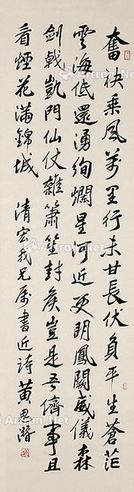 奮袂乘風萬里行未甘長伏負平生蒼茫
雲海低還湧絢爛星河近更明鳳闕威儀森
劍戟凱門仙仗雜簫笙封侯豈是吾儕事且
看煙花滿錦城
清宏我兄屬書近詩黃